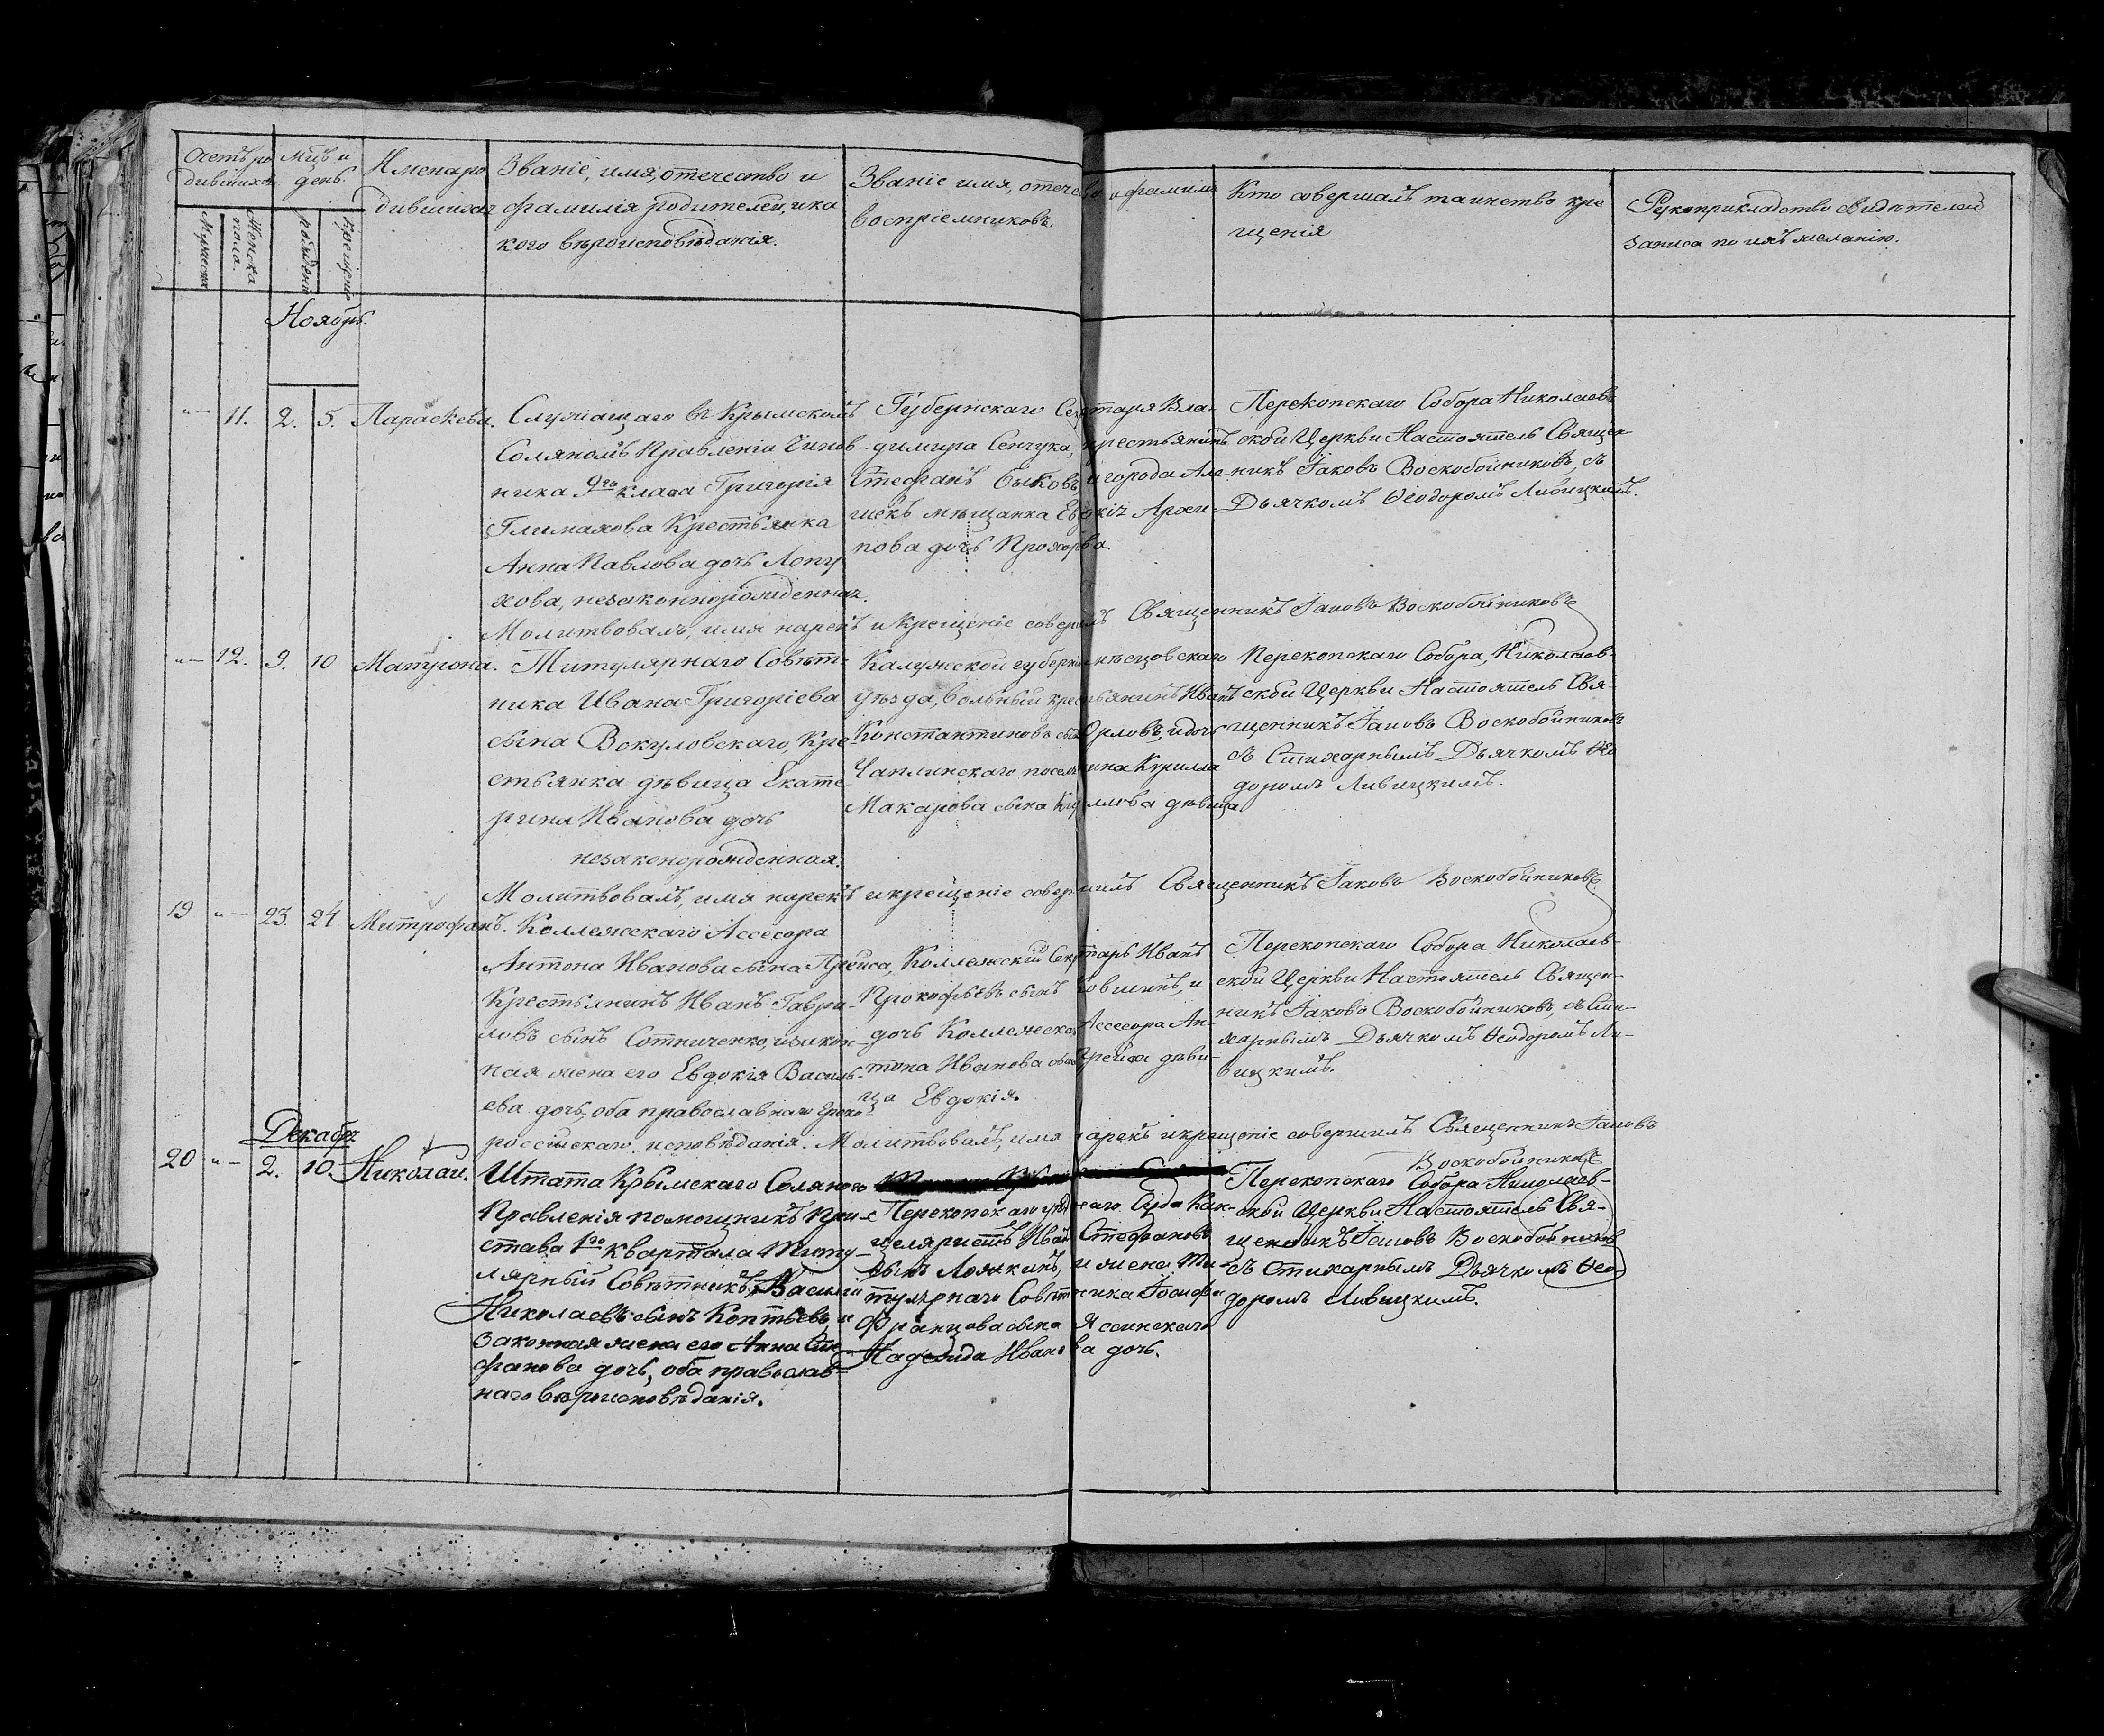 Счетъ ро
дившихся
Мцъ и
день.
Имена ро
дившихся
Званіе, имя, отечество и
фамилія родителей, и ка
кого вѣроисповѣданія.
Званіе имя, отечество и фамилія
воспріемниковъ.
Кто совершалъ таинство кре
щенія
Рукоприкладство свидѣтелей
записа по ихъ желанію.
Мужеска
Женска
пола.
рожденія
крещенія
Ноябрь.
11. 2. 5. Параскева.
Служащаго въ Крымскомъ
Соляномъ Правленіи Чинов-
ника 9го класа Григорія
Крестьянка
Анна Павлова дочь Лопу
хова, незаконнорожденная.
Губернскаго Секретаря Вла-
димира Сенчука, крестьянинъ
Стефанъ Быковъ, и города Але-
шекъ мѣщанка Евдокія Архи-
пова дочь Прохорова.
Перекопскаго Собора Николаев
ской Церкви Настоятель Священ
никъ Іаковъ Воскобойниковъ, съ
Дьячкомъ Ѳеодоромъ Ливицкимъ.
Молитвовалъ, имя нарекъ и крещеніе совершилъ Священникъ Іаковъ Воскобойниковъ
12. 9. 10 Матрона.
Титулярнаго Совѣт-
ника Ивана Григоріева
сына Вокуловскаго, Кре
стьянка дѣвица Екате
рина Иванова дочь
незаконорожденная.
Калужской губерніи
уѣзда, вольный крестьянинъ Иванъ
Константиновъ сынъ Орловъ, и дочь
Чаплинскаго поселянина Курилла
Макарова сына дѣвица
Перекопскаго Собора, Николаев-
ской Церкви Настоятель Свя-
щенникъ Іаковъ Воскобойниковъ
съ Стихарнымъ Дьячкомъ Ѳео
доромъ Ливицкимъ.
Молитвовалъ, имя нарекъ и крещеніе совершилъ Священникъ Іаковъ Воскобойниковъ
19 23. 24 Митрофанъ.
Коллежскаго Ассесора
Антона Иванова сына Прейса,
Крестьянинъ Иванъ Гаври-
ловъ сынъ Сотниченко, и закон-
ная жена его Евдокія Василь-
ева дочь, оба православнаго Греко
россійскаго исповѣданія.
Коллежскій Секретарь Иванъ
Прокофьевъ сынъ и
дочь Коллежскаго Ассесора Ан-
тона Иванова сына Прейса дѣви-
ца Евдокія.
Перекопскаго Собора Николаев-
ской Церкви Настоятель Священ-
никъ Іаковъ Воскобойниковъ, съ Сти-
харнымъ Дьячкомъ Ѳеодоромъ Ли-
вицкимъ.
Молитвовалъ, имя нарекъ и крещеніе совершилъ Священникъ Іаковъ
Воскобойниковъ
Декабрь
20 2. 10. Николай.
Штата Крымскаго Солянаго
Правленія помощникъ При-
става 1го квартала Титу-
лярный Совѣтникъ Василій
Николаевъ сынъ Коптѣевъ, и
Законная жена его Анна Сте
фанова дочь, оба православ-
наго вѣроисповѣданія.
Перекопскаго уѣзднаго Суда Кан-
целяристъ Иванъ Стефановъ
сынъ Ложкинъ, и жена Ти-
тулярнаго Совѣтника Іосифа
Францова сына Ясинскаго
Надежда Иванова дочь.
Перекопскаго Собора Николаев-
ской Церкви Настоятель Свя-
щенникъ Іаковъ Воскобойниковъ
съ Стихарнымъ Дьячкомъ Ѳео
доромъ Ливицкимъ.